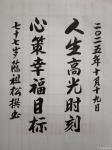 二〇二五年十月十九日
人生高光时刻
心策幸福目标
七十七岁范祖松撰并